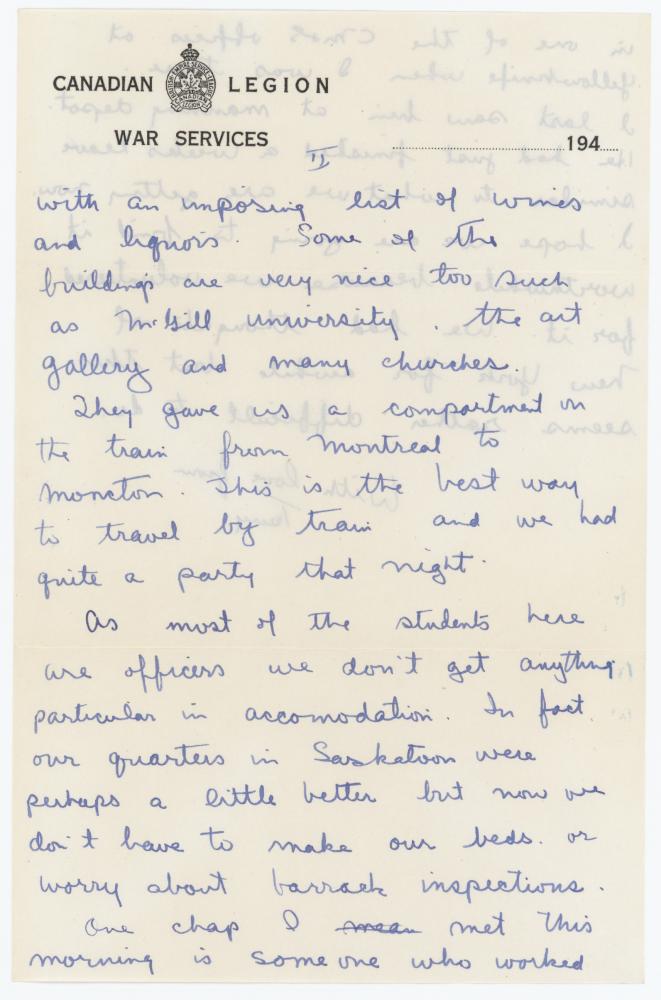 CANADIAN LEGION
WAR SERVICES
194
II
with an imposing list of wines
and liquors. Some of the
buildings are very nice too such
as McGill university, the art
gallery and many churches.
They gave us a compartment on
the train from Montreal to
Moncton. This is the best way
to travel by train and we had
quite a party that night.
As most of the students here
are officers we don't get anything
particular in accomodation. In fact
our quarters in Saskatoon were
perhaps a little better but now we
don't have to make our beds. or
worry about barrack inspections.
One chap I mean met this
morning is someone who worked